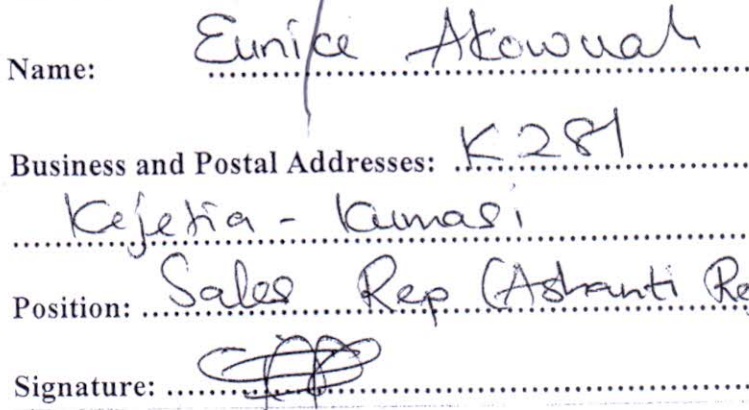 Name: Eunice Akowuah
Business and Postal Addresses: K281
Kejetia - Kumasi
Position: Sales Rep (Ashanti Re
Signature: